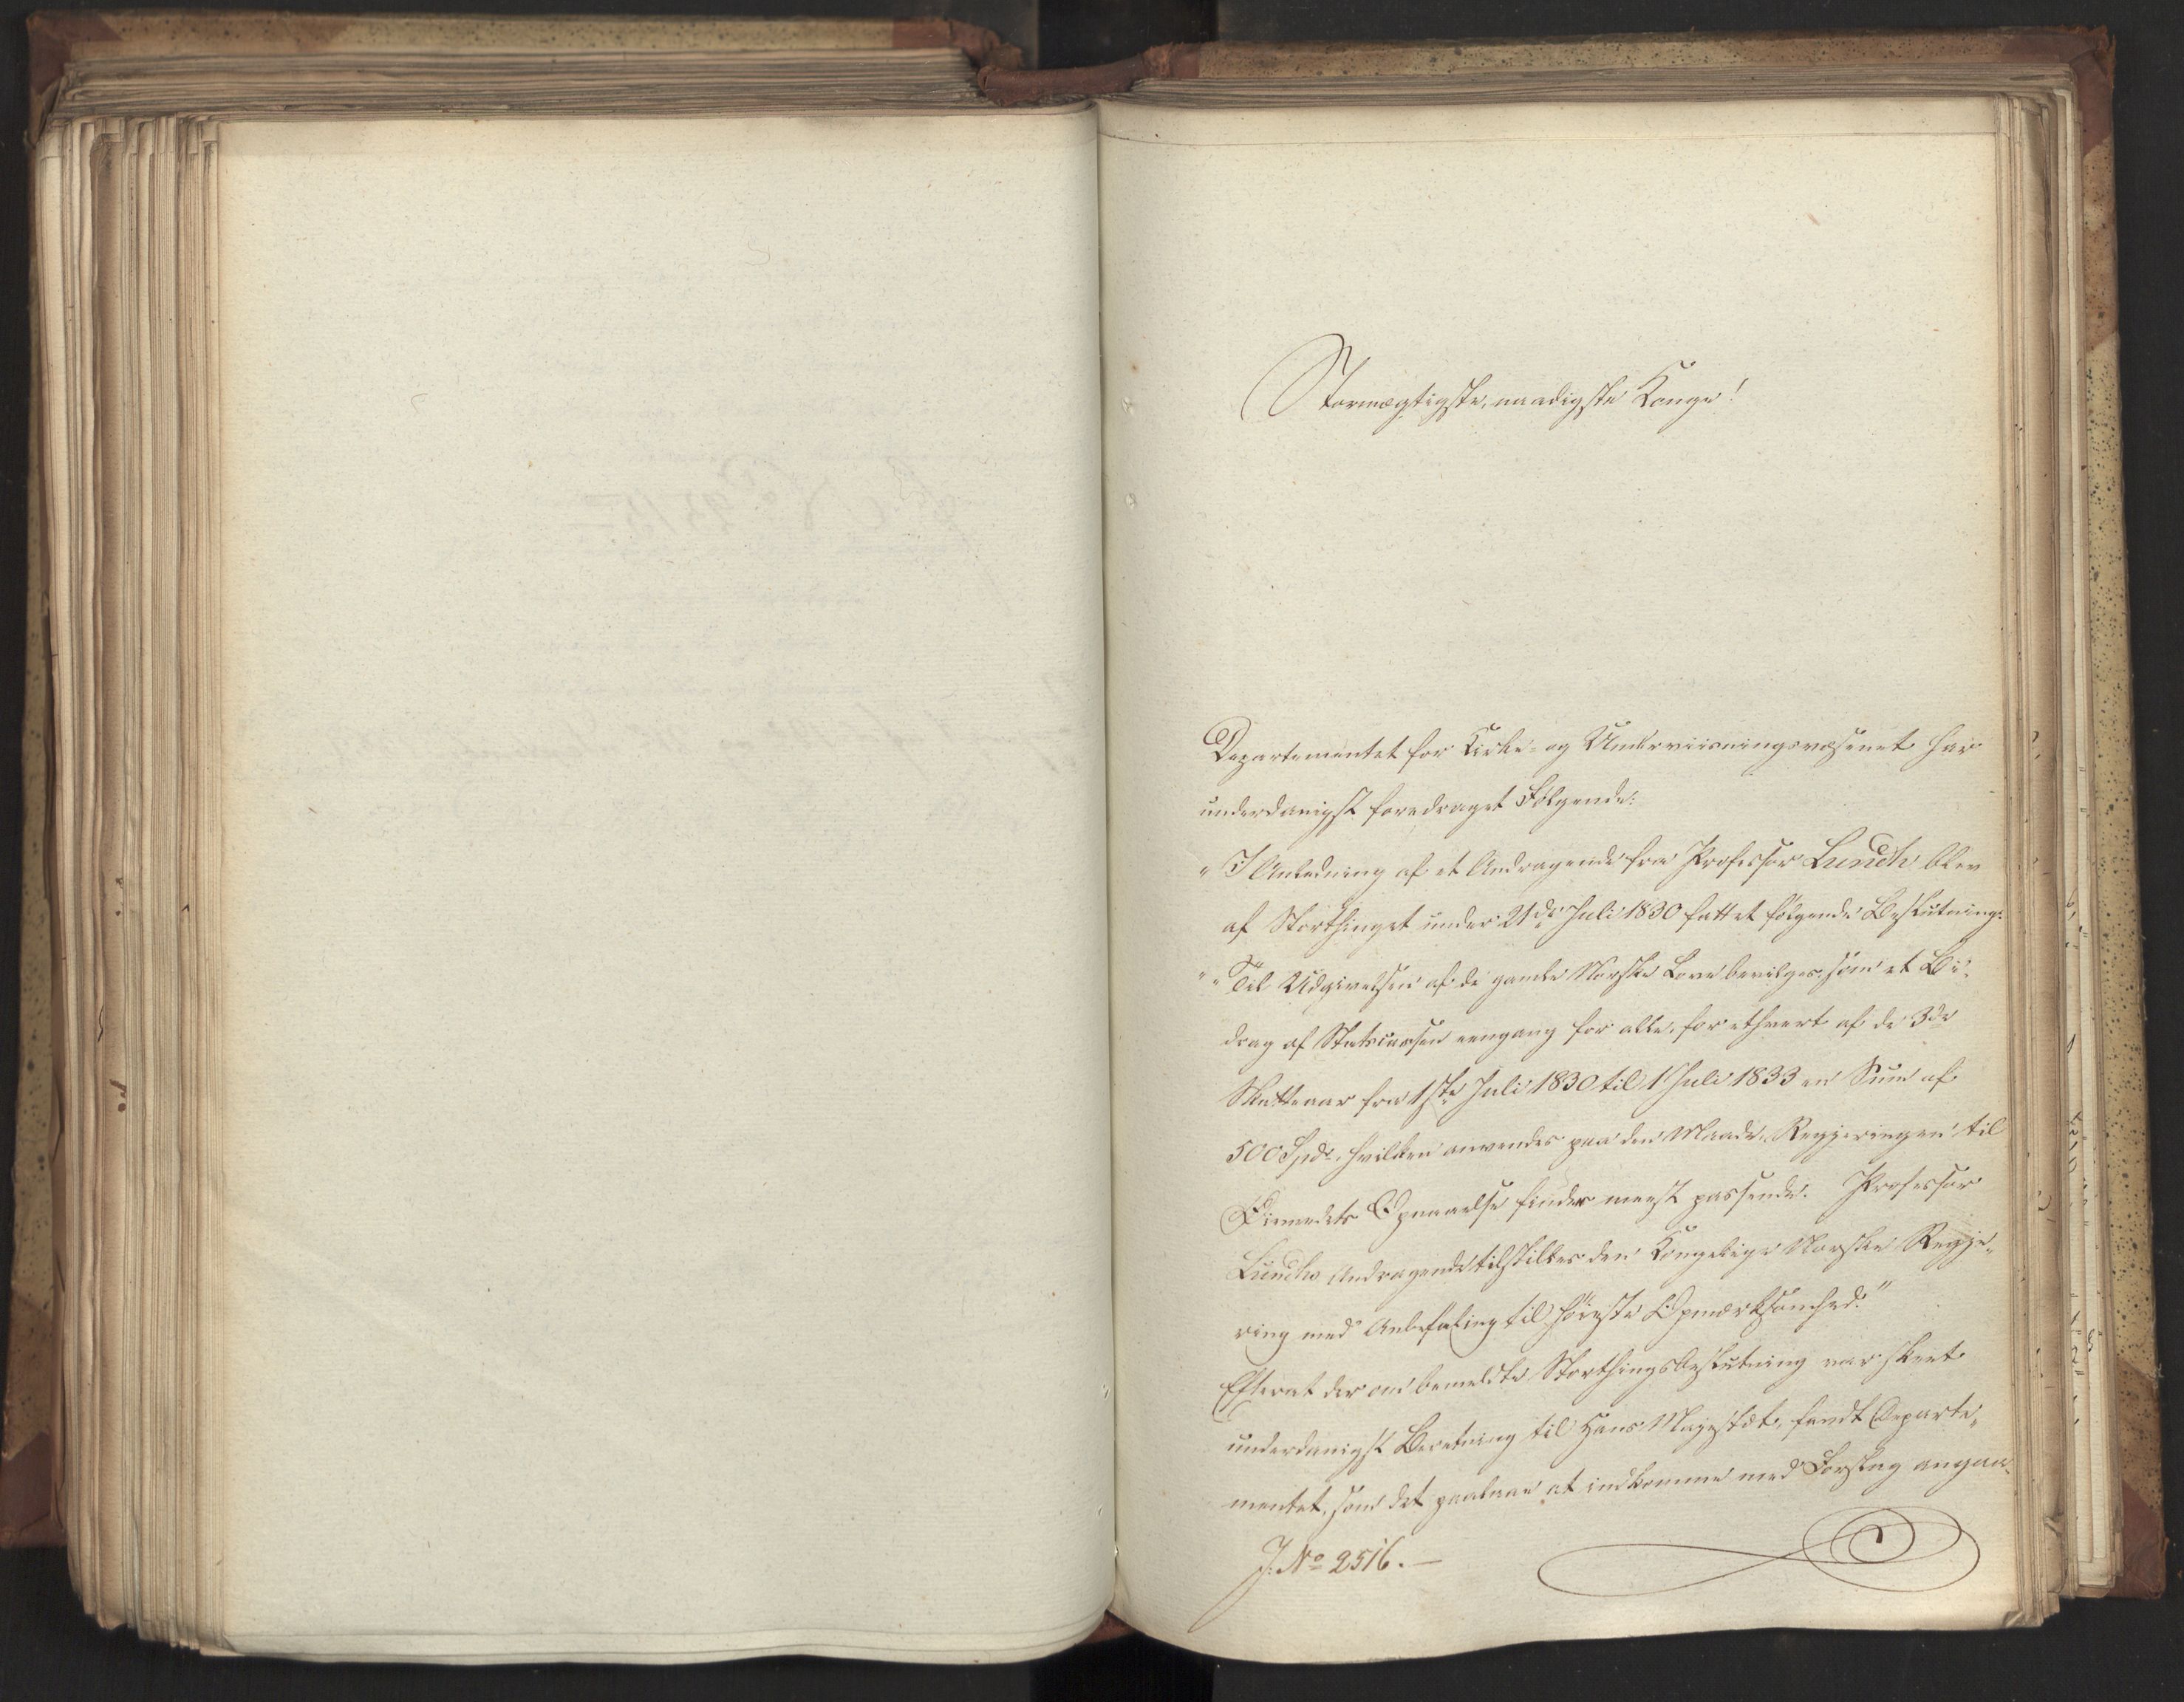 Stormægtigste, naadigste Konge!
Departementet for Kirke- og Underviisningsvæsenet har
underdanigst foredraget Følgende:
„I Anledning af et Andragende fra Professor Lundh blev
af Storthinget under 21de Juli 1830 fattet følgende Beslutning:
„„Til Udgivelsen af de gamle Norske Love bevilges, som et Bi-
drag af Statscassen eengang for alle, for ethvert af de 3de
Skatteaar fra 1ste Juli 1830 til 1 Juli 1833 en Sum af
500 Spd, hvilken anvendes paa den Maade, Regjeringen til
Øiemedets Opnaaelse finder meest passende. Professor
Lundhs Andragende tilstilles den Kongelige Norske Regje-
ring med Anbefaling til høieste Opmærksomhed.“
Efterat der om bemeldte Storthingsbeslutning var skeet
underdanigst Beretning til Hans Majestæt, fandt Departe-
mentet, som det paalaae at indkomme med Forslag angaa-
J. No 2516.—